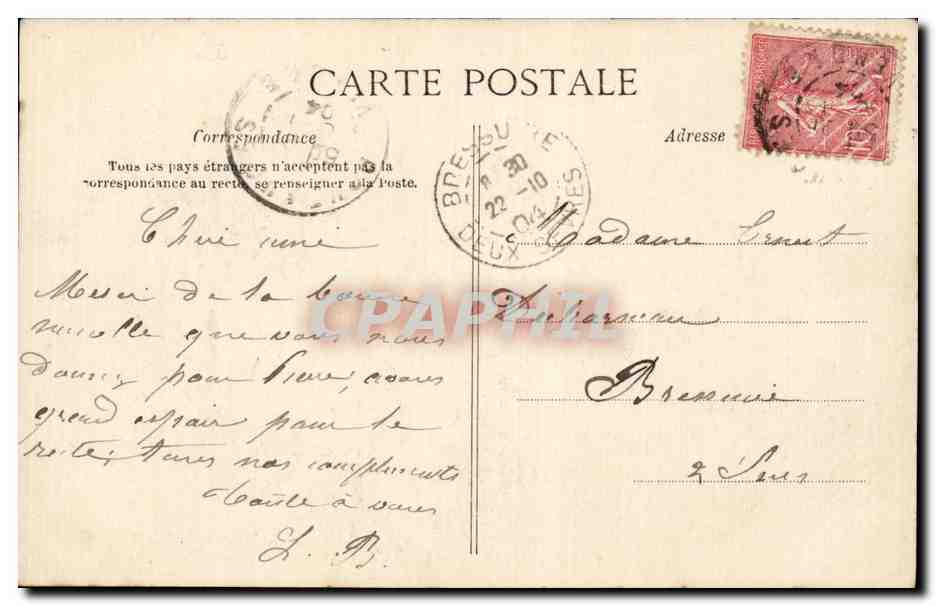 CARTE POSTALE
Correspondance
Tous les pays étrangers n'acceptent pas la
correspondance au recto, se renseigner à la Poste.
Adresse
BRESSUIRE
8 30
22 -10
04
DEUX-SÈVRES
Chère amie
Merci de la bonne
nouvelle que vous nous
donnez pour Pierre, avons
grand espoir pour le
reste, tous nos compliments
toute à vous
L. B.
Madame Ernest
Bressuire
2 Sèvres
CPAPHIL